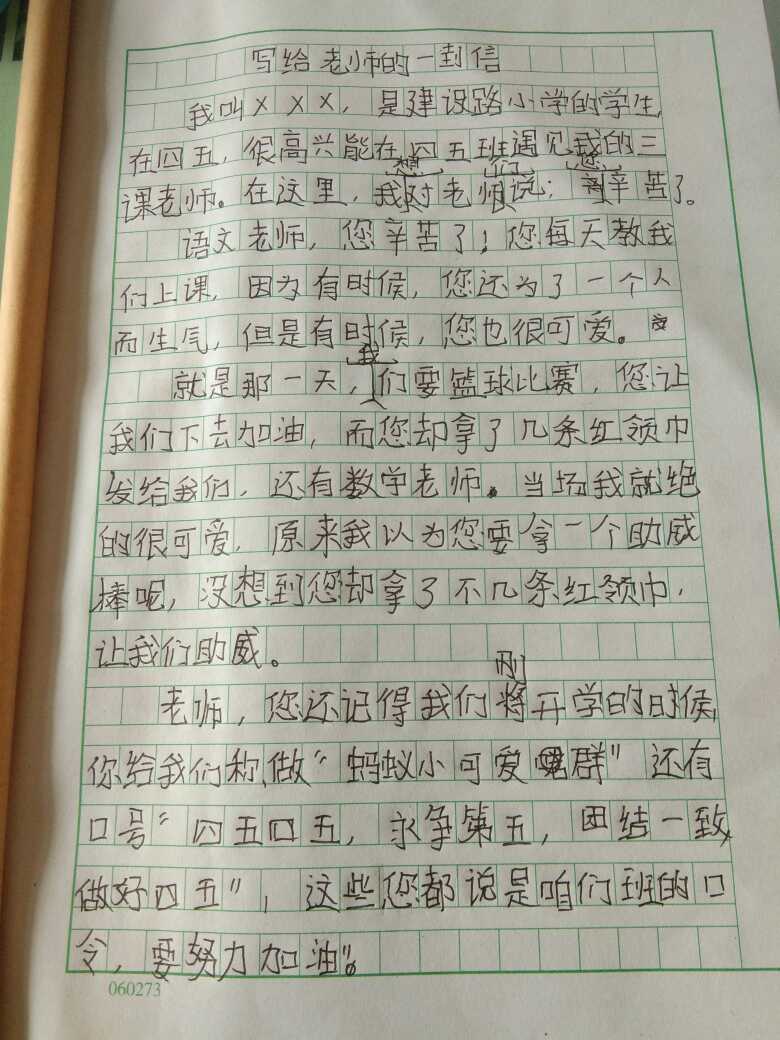 写给老师的一封信
我叫XXX，是建设路小学的学生，
在四五，很高兴能在四五班遇见我的三
课老师。在这里，我想对老师们说：您辛苦了。
语文老师，您辛苦了！您每天教我
们上课，因为有时候，您还为了一个人
而生气，但是有时候，您也很可爱。
就是那一天，我们要篮球比赛，您让
我们下去加油，而您却拿了几条红领巾
发给我们，还有数学老师。当场我就绝
的很可爱，原来我以为您要拿一个助威
棒呢，没想到您却拿了不几条红领巾，
让我们助威。
老师，您还记得我们刚开学的时候，
你给我们称做“蚂蚁小可爱群”还有
口号“四五四五，永争第五，团结一致，
做好四五”，这些您都说是咱们班的口
令，要努力加油”。
060273